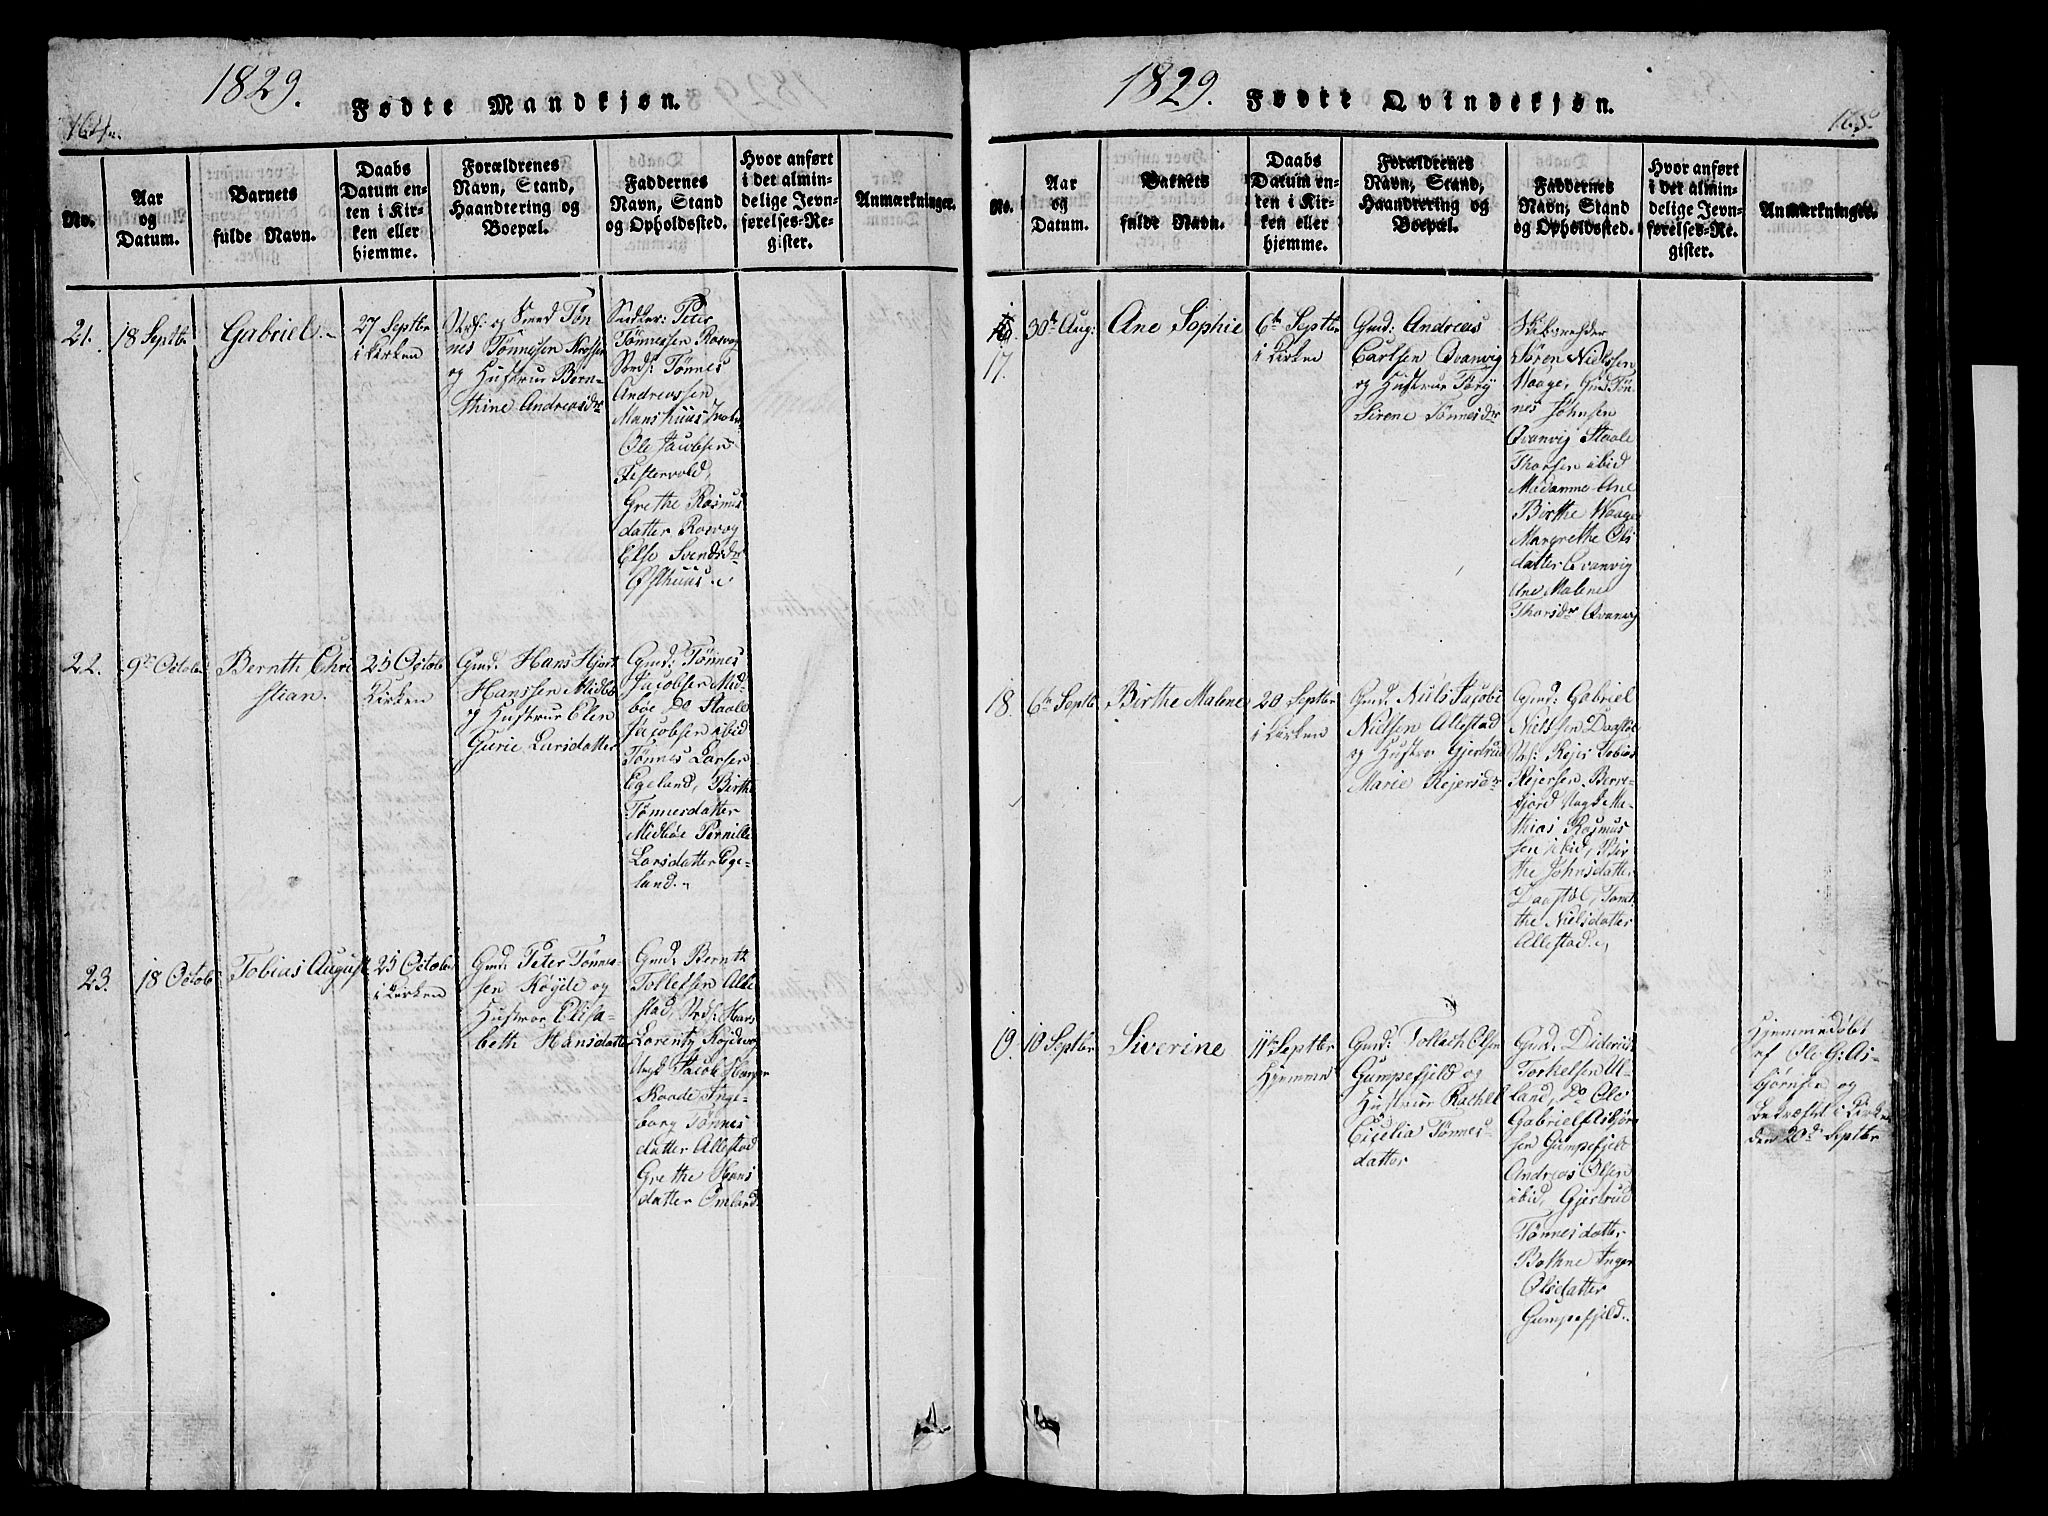 1829.
Fødte Mandkjøn.
164.
No.
Aar
og
Datum.
Barnets
fulde Navn.
Daabs
Datum en-
ten i Kir-
ken eller
hjemme.
Forældrenes
Navn, Stand,
Haandtering og
Boepæl.
Faddernes
Navn, Stand
og Opholdssted.
Hvor anført
i det almin-
delige Jevn-
førelses-Re-
gister.
Anmærkninger.
21.
18 Septbr
Gabriel
27 Septbr
i Kirken
og Smed Tøn
nes Tønnessen
og Hustrue Bern-
thine Andreasdr
Peter
Tønnessen Rosvog
Tønnes
Andreassen
Manshuus
Ole Jacobsen
Festervold,
Grethe Rasmus
datter Rosvog
Else Svendsdr
Østhuus
22.
9de Octobr
Bernth Chri
stian.
25 Octobr
Kirken
Gmd: Hans Hjort
Hanssen Midbø
og Hustrue Elen
Gurie Larsdatter
Gmd: Tønnes
Jacobsen Mid-
bøe Do Staale
Jacobsen ibid
Tønnes Larsen
Egeland, Birthe
Tønnesdatter
Midbøe Pernille
Larsdatter Ege-
land.
23.
18 Octobr
Tobias August
25 Octobr
i Kirken
Gmd: Peter Tønne-
sen Røyde og
Hustroe Elisa-
beth Hansdatter
Gmd: Bernth
Tollefsen Alle
stad, Hans
Lorentz
Ungk Jacob
Raade Inge-
borg Tønnes
datter Allestad
Grethe Hans
datter Omland.
1829.
Fødte Qvindekjøn.
165.
No.
Aar
og
Datum.
Barnets
fulde Navn.
Daabs
Datum en-
ten i Kir-
ken eller
hjemme.
Forældrenes
Navn, Stand,
Haandtering og
Boepæl.
Faddernes
Navn, Stand
og Opholdssted.
Hvor anført
i det almin-
delige Jevn-
førelses-Re-
gister.
Anmærkninger.
17.
30te Aug:
Ane Sophie
6te Septbr
i Kirken
Gmd: Andreas
Carlsen Qvanvig
og Hustrue Tory
Sirene Tønnesdr
Skibsrehder
Søren Nielssen
Waage, Gmd Tøn
nes Johnsen
Qvanvig Staale
Thorsen ibid
Madamme Ane
Birthe Waage
Margrethe Ols
datter Qvanvig
Ane Malene
Thorsdr Qvanvig
18.
6te Septb
Birthe Malene
20 Septbr
i Kirken
Gmd: Niels Jacob
Nielsen Allestad
og Hustroe Gjertrud
Marie Rejersdr
Gmd: Gabriel
Nielssen Daastøl
Rejer Tobias
Rejersen Berre-
fjord Ungk Ma-
thias Rasmus
sen ibid, Bir
the Johnsdatter
Daastøl,
the Nielsdatter
Allestad.
19.
10 Septbr
Siverine
11te Septbr
Hjemme
Gmd: Tollach Olsen
Gumpefjeld og
Hustroe Rachel
Cicilia Tønnes-
datter
Gmd: Diderich
Torkelsen U-
land, Do Ole
Gabriel Asbjørn
sen Gumpefjeld
Andreas Olsen
ibid, Gjertrud
Tønnesdatter
Bothne Inger
Olsdatter
Gumpefjeld.
Hjemmedøbt
af Ole G: As-
bjørnsen og
bekræftet i Kirken
den 20de Septbr